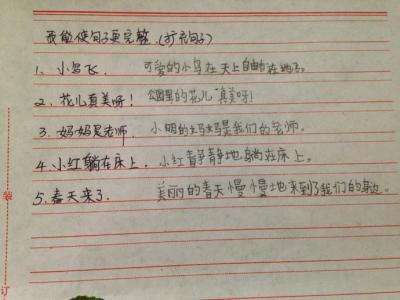 我能使句子更完整。(扩充句子)
1、小鸟飞。 可爱的小鸟在天上自由自在地飞。
2、花儿真美呀! 公园里的花儿真美呀!
3、妈妈是老师。 小明的妈妈是我们的老师。
4、小红躺在床上。 小红静静地躺在床上。
5、春天来了。 美丽的春天慢慢地来到了我们的身边。
装
订